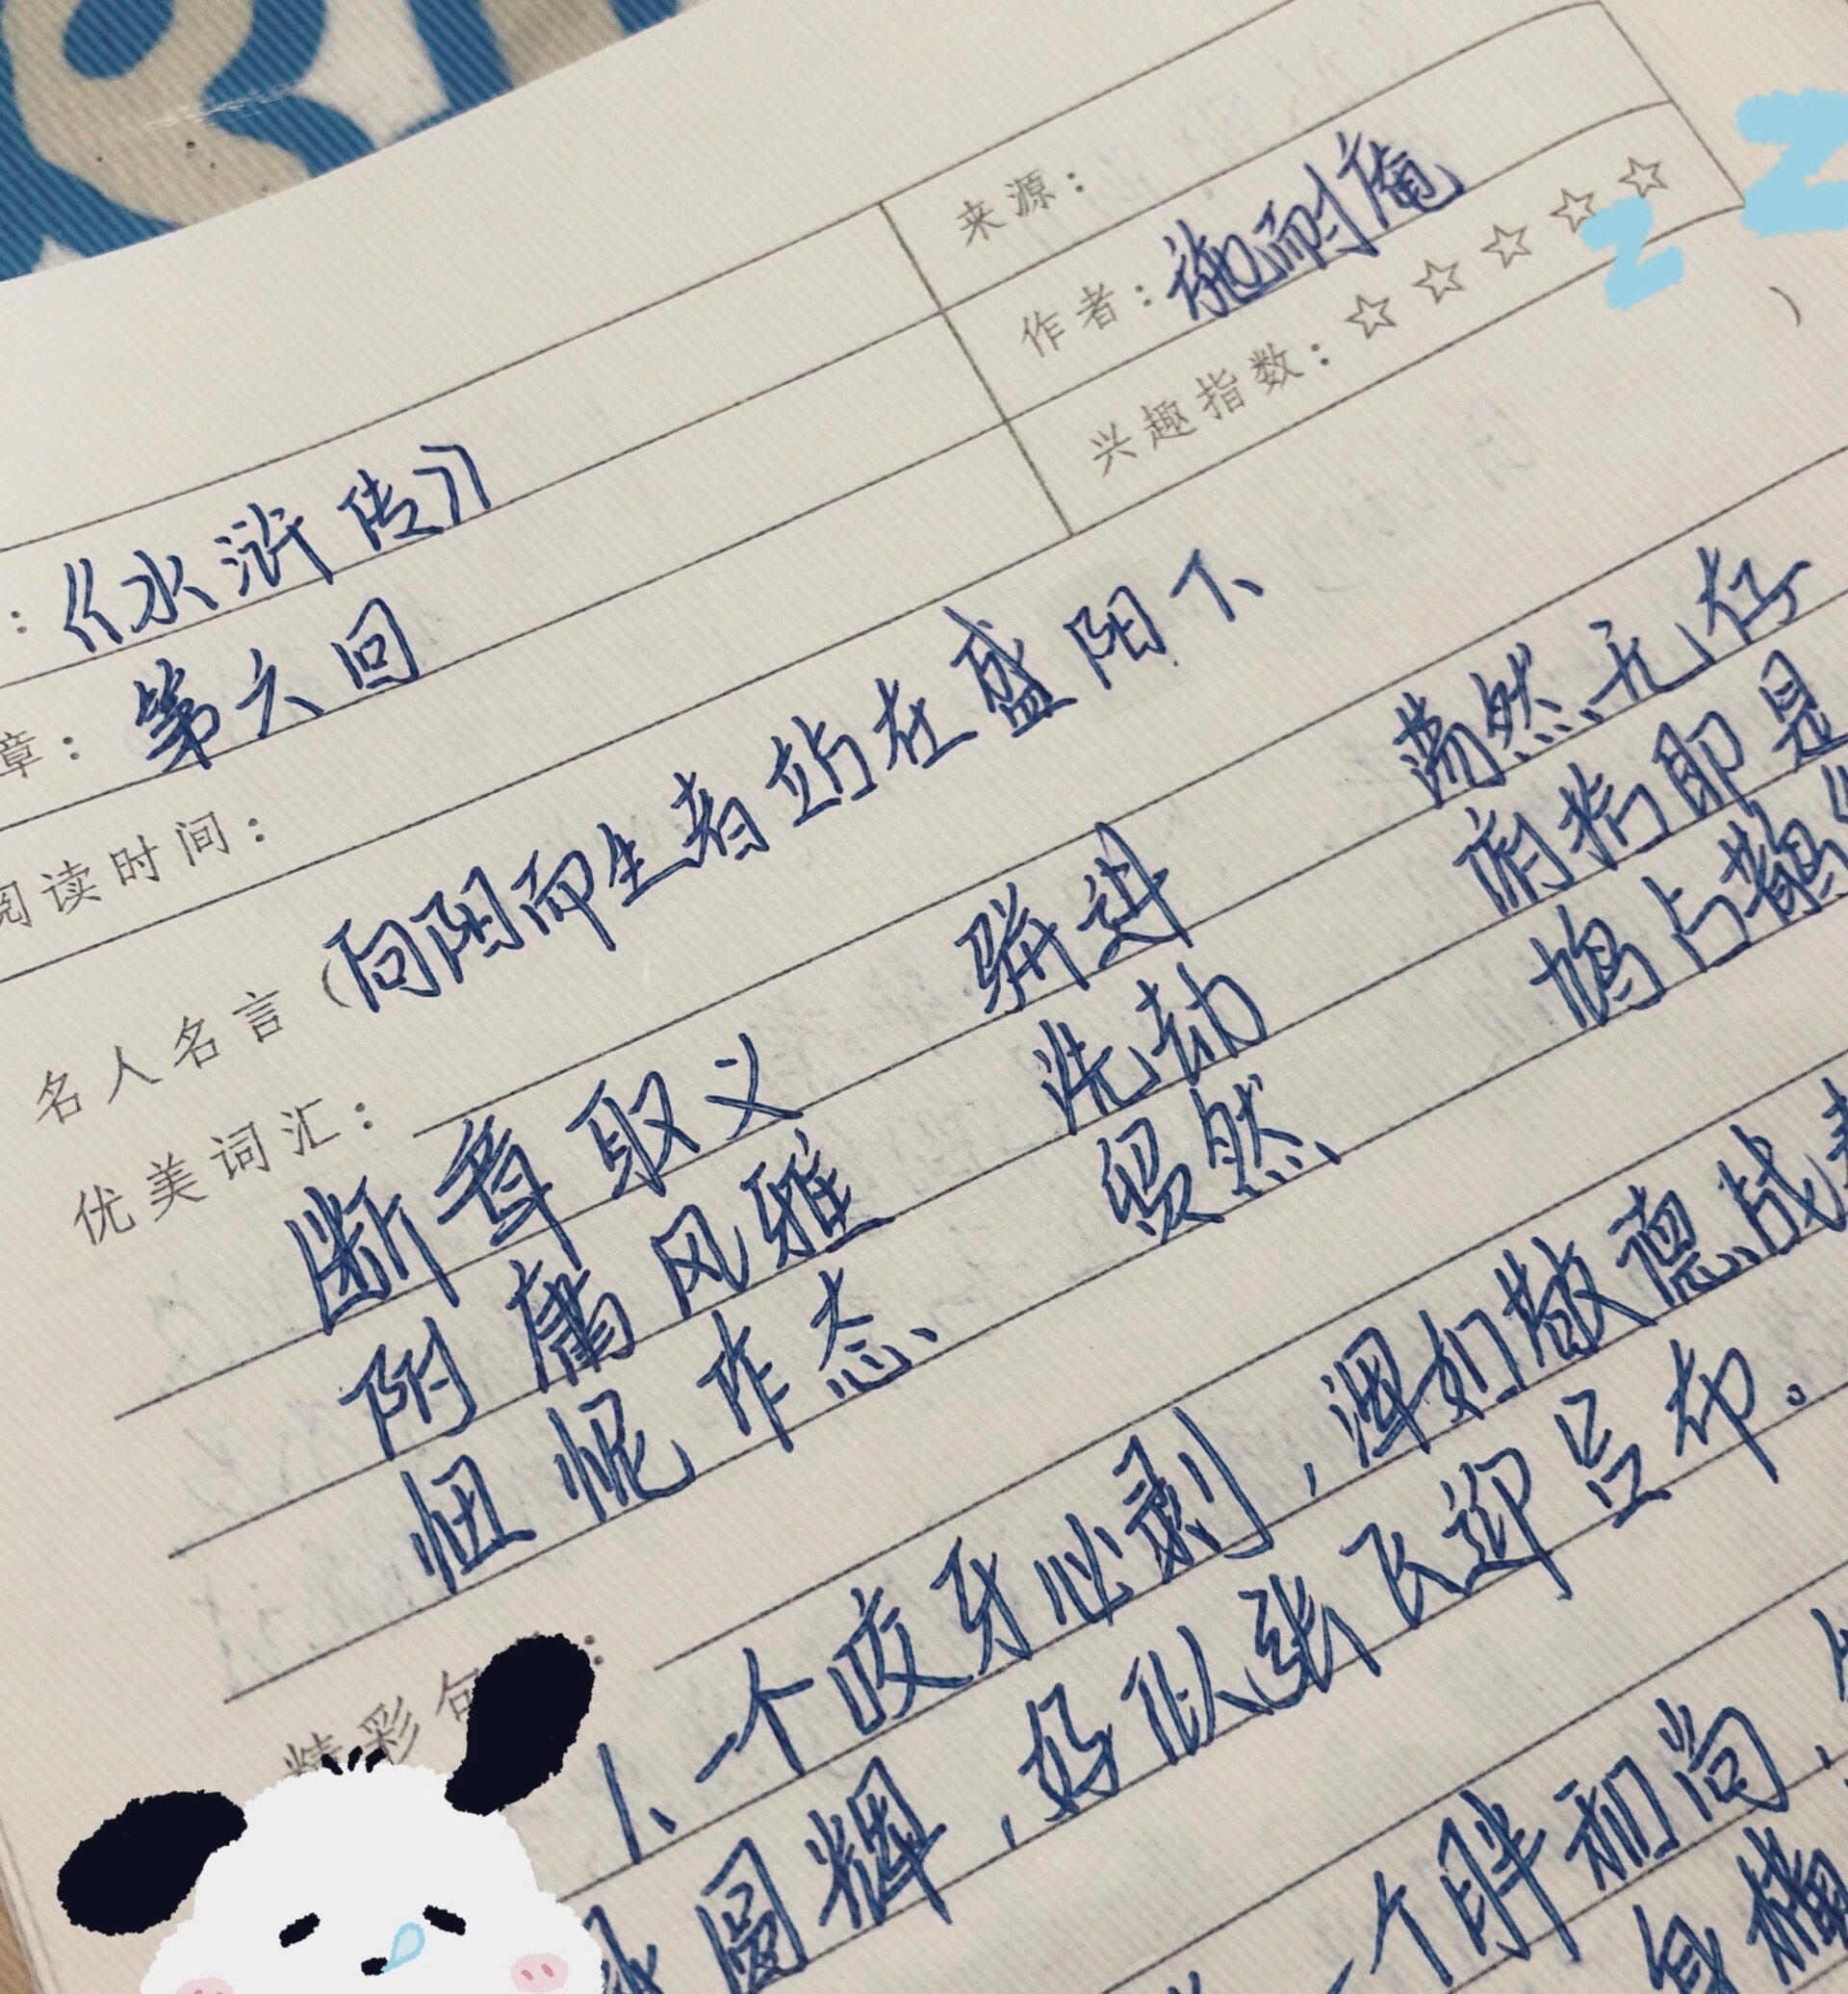 来源：
：《水浒传》 作者：施耐庵
章：第六回 兴趣指数：☆☆☆☆☆
阅读时间：
名人名言（向阳而生者站在盛阳下 ）
优美词汇：
断章取义 骈进 荡然无存
附庸风雅 洗劫 俯拾即是
忸怩作态 倏然 鸠占鹊
精彩句：
1、一个咬牙必剥，浑如敬德战
圆辉，好似张飞迎吕布。
一个胖和尚，
身
Z
Z